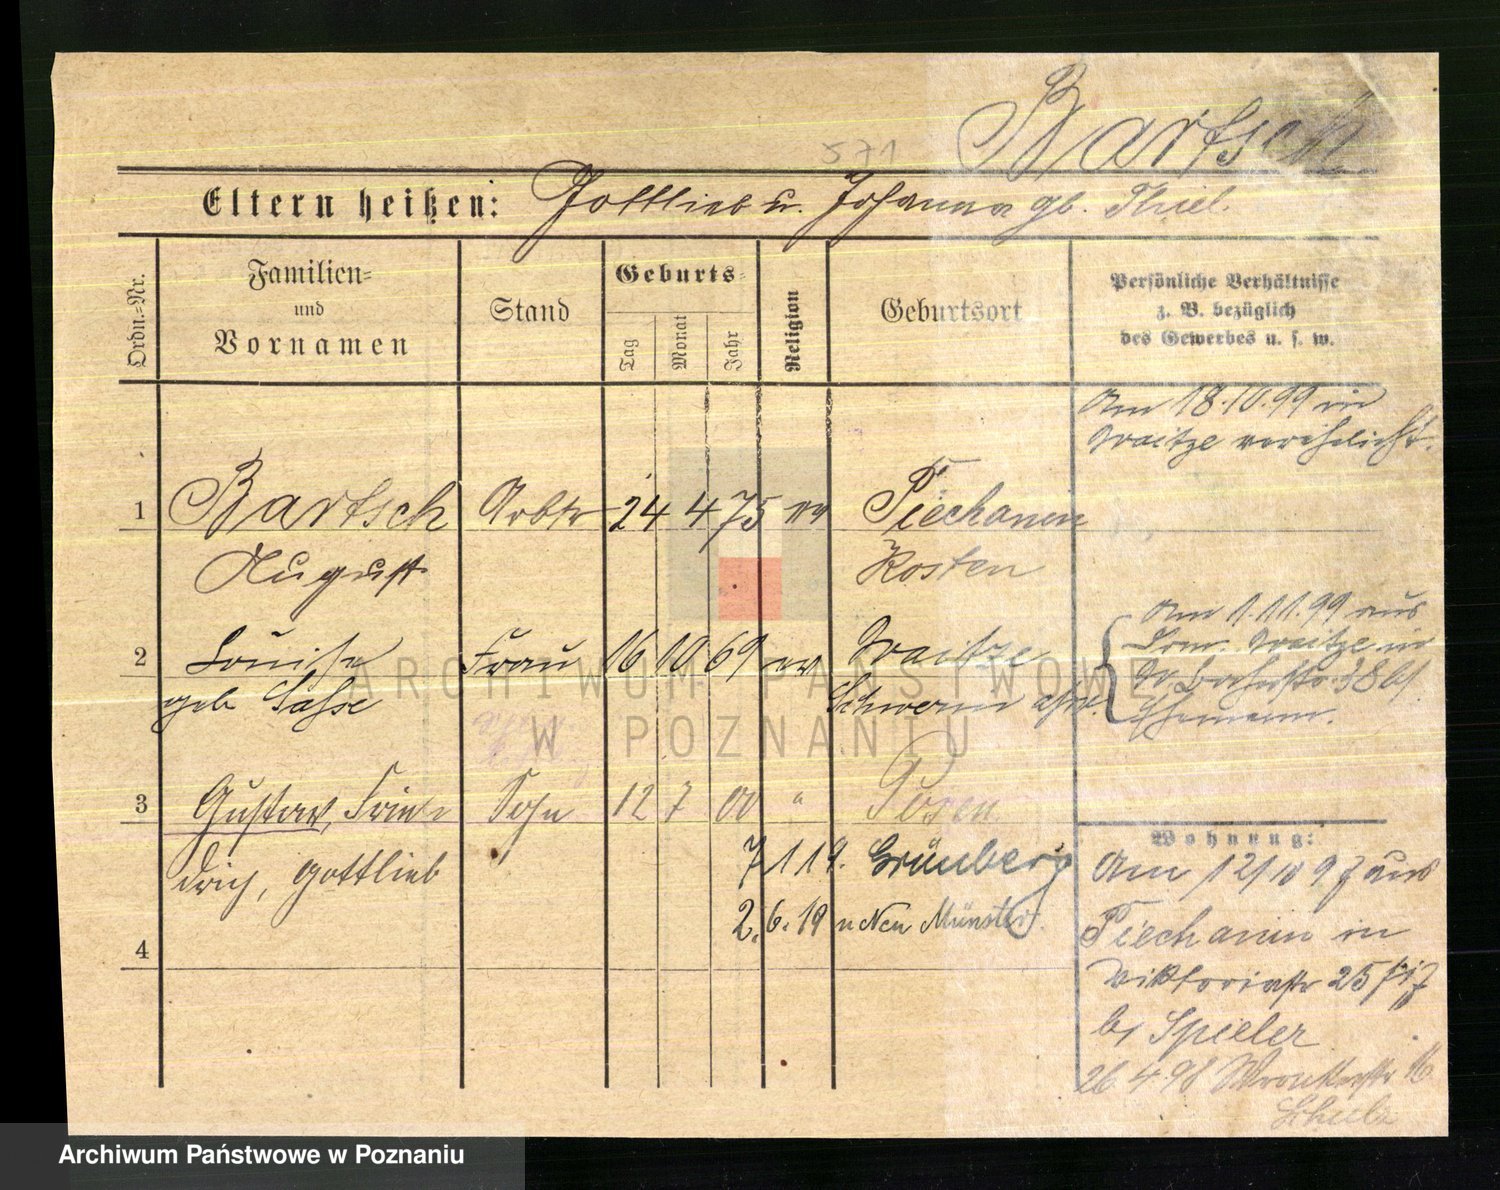 Bartsch
571
Eltern heißen: Gottlieb u. Johanna gb. Thiel.
Ordn.-Nr.
Familien-
und
Vornamen
Stand
Geburts-
Tag
Monat
Jahr
Religion
Geburtsort
Persönliche Verhältnisse
z. B. bezüglich
des Gewerbes u. s. w.
Am 18.10.99 in
Waitze verehelicht.
1 Bartsch Arbtr 24 4 75 ev Piechanin
August Kosten
2 Louise Frau 16 10 69 ev Waitze
geb Sasse Schwerin a/W.
Am 1.11.99 aus
Waitze in
Ehemann.
3 Gustav, Frie- Sohn 12 7 00 " Posen.
drich, Gottlieb
7 1 19. Grünberg
2. 6. 19 n Neu Münster.
4
Wohnung:
Am 12/10 97 aus
Piechanin in
Viktoriastr 25
b/ Spieler
26 4 98 Wronkerstr 16
Schulz
ARCHIWUM PAŃSTWOWE
W POZNANIU
Archiwum Państwowe w Poznaniu